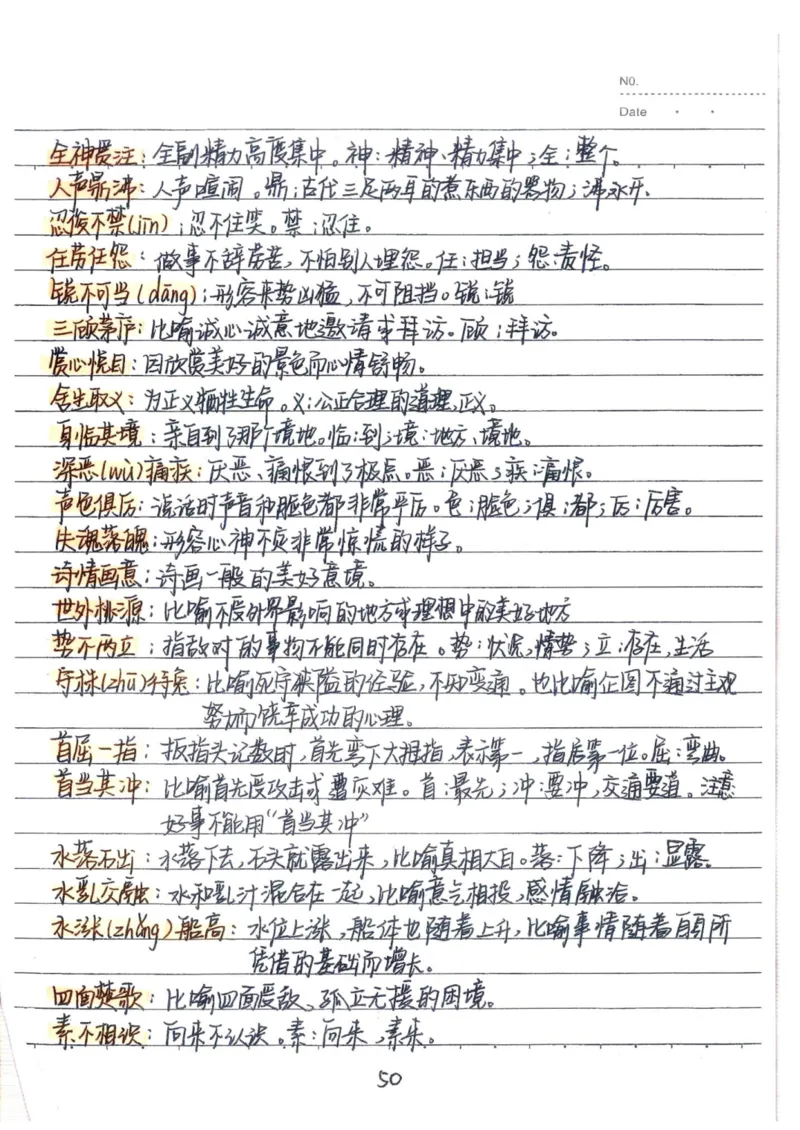 NO.
Date
全神贯注：全副精力高度集中。神：精神、精力集中；全：整个。
人声鼎沸：人声喧闹。鼎：古代三足两耳的煮东西的器物；沸：水开。
忍俊不禁(jīn)：忍不住笑。禁：忍住。
任劳任怨：做事不辞劳苦，不怕别人埋怨。任：担当；怨：责怪。
锐不可当(dāng)：形容来势凶猛，不可阻挡。锐：锐
三顾茅庐：比喻诚心诚意地邀请或拜访。顾：拜访。
赏心悦目：因欣赏美好的景色而心情舒畅。
舍生取义：为正义牺牲生命。义：公正合理的道理，正义。
身临其境：亲自到了那个境地。临：到；境：地方、境地。
深恶(wù)痛疾：厌恶、痛恨到了极点。恶：厌恶；疾：痛恨。
声色俱厉：说话时声音和脸色都非常严厉。色：脸色；俱：都；厉：厉害。
失魂落魄：形容心神不定非常惊慌的样子。
诗情画意：诗画一般的美好意境。
世外桃源：比喻不受外界影响的地方或理想中的美好地方
势不两立：指敌对的事物不能同时存在。势：状况，情势；立：存在，生活
守株(zhū)待兔：比喻死守狭隘的经验，不知变通。也比喻企图不通过主观
努力而侥幸成功的心理。
首屈一指：扳指头记数时，首先弯下大拇指，表示第一，指居第一位。屈：弯曲。
首当其冲：比喻首先受攻击或遭灾难。首：最先；冲：要冲，交通要道。注意
好事不能用“首当其冲”
水落石出：水落下去，石头就露出来，比喻真相大白。落：下降；出：显露。
水乳交融：水和乳汁混合在一起，比喻意气相投，感情融洽。
水涨(zhǎng)船高：水位上涨，船体也随着上升，比喻事情随着自身所
凭借的基础而增长。
四面楚歌：比喻四面受敌、孤立无援的困境。
素不相识：向来不认识。素：向来，素来。
50